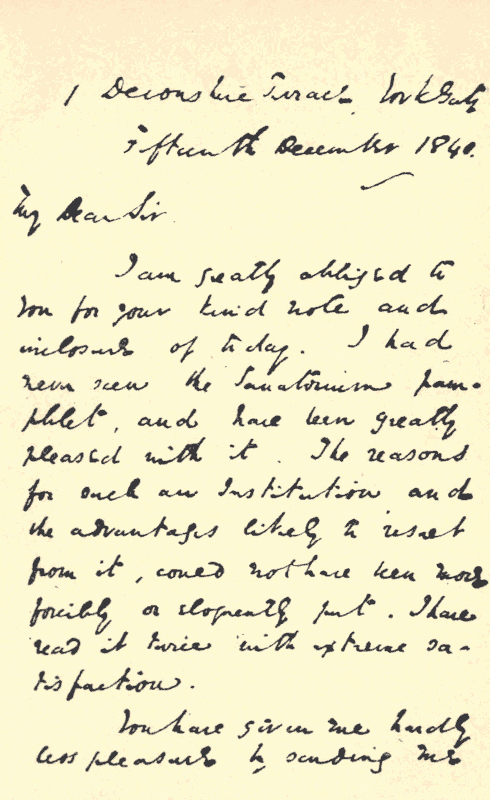 1 Devonshire Terrace, York Gate
Fifteenth December 1840.
My Dear Sir
I am greatly obliged to
you for your kind note and
inclosure of today. I had
never seen the Sanatorium pam-
phlet, and have been greatly
pleased with it. The reasons
for such an Institution and
the advantages likely to result
from it, could not have been more
forcibly or eloquently put. I have
read it twice with extreme sa-
tisfaction.
You have given me hardly
less pleasure by sending me